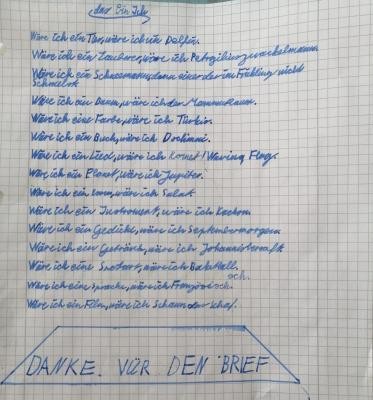 das Bin Ich
Wäre ich ein Tier, wäre ich ein Delfin.
Wäre ich ein Zauberer, wäre ich Petrosilius zwackelmann
Wäre ich ein Schneemann, dann einer der im Frühling nicht
schmelzt
Wäre ich ein Baum, wäre ich der Mammutbaum.
Wäre ich eine Farbe, wäre ich Türkis.
Wäre ich ein Buch, wäre ich
Wäre ich ein Lied, wäre ich Komet/Waving Flag.
Wäre ich ein Planet, wäre ich Jupiter.
Wäre ich ein wäre ich Salat
Wäre ich ein Instrument, wäre ich
Wäre ich ein Gedicht, wäre ich Septembermorgen
Wäre ich ein Getränk, wäre ich Johannisbersaft
Wäre ich eine wäre ich
Wäre ich eine Sprache, wäre ich Französisch.
sch.
Wäre ich ein Film, wäre ich Schaun das schaf.
DANKE. VÜR DEN BRIEF